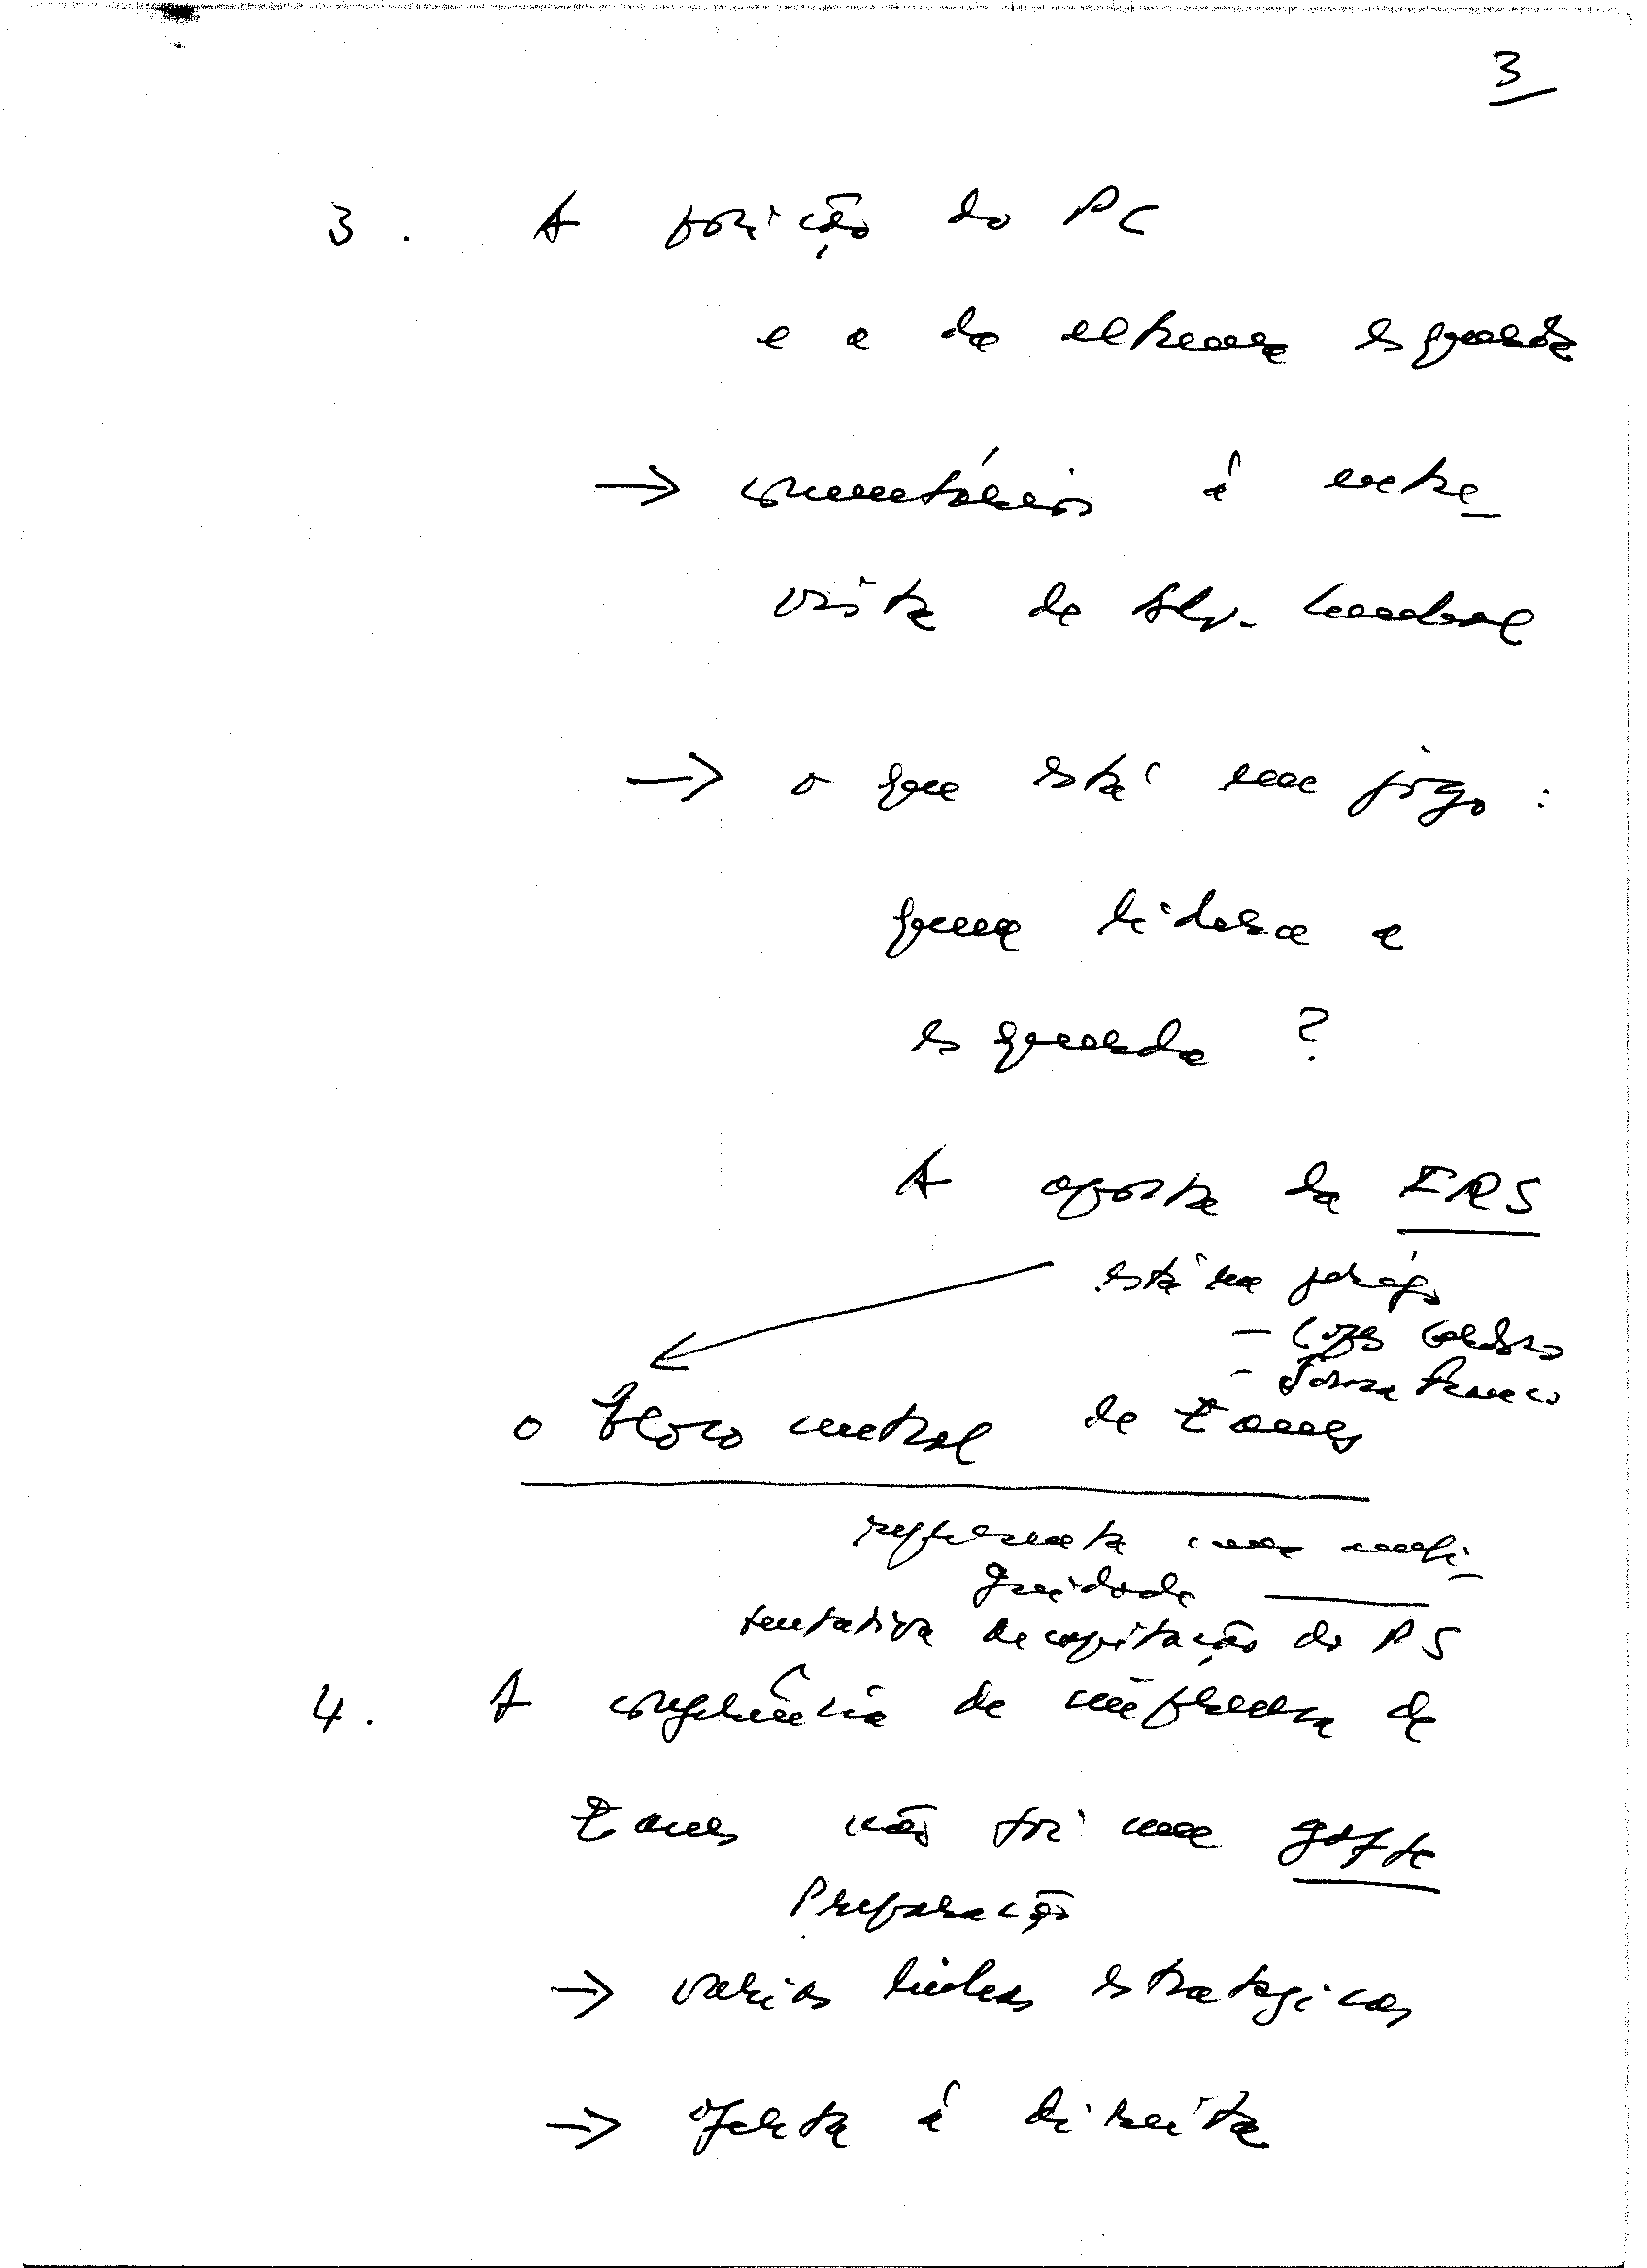 3
3. A posição do PC
e a da extrema esquerda
→ comentários à entre_
vista de Alv. Cunhal
→ o que está em jogo :
quem lidera a
esquerda ?
A aposta da FRS
está em perigo
- Lopes Cardoso
- Sousa Franco
o bloco central de Eanes
representa uma ambi_
guidade
tentativa decapitação do PS
4. A conferência de imprensa de
Eanes não foi uma gaffe
Preparação
→ várias linhas estratégicas
→ oferta à direita